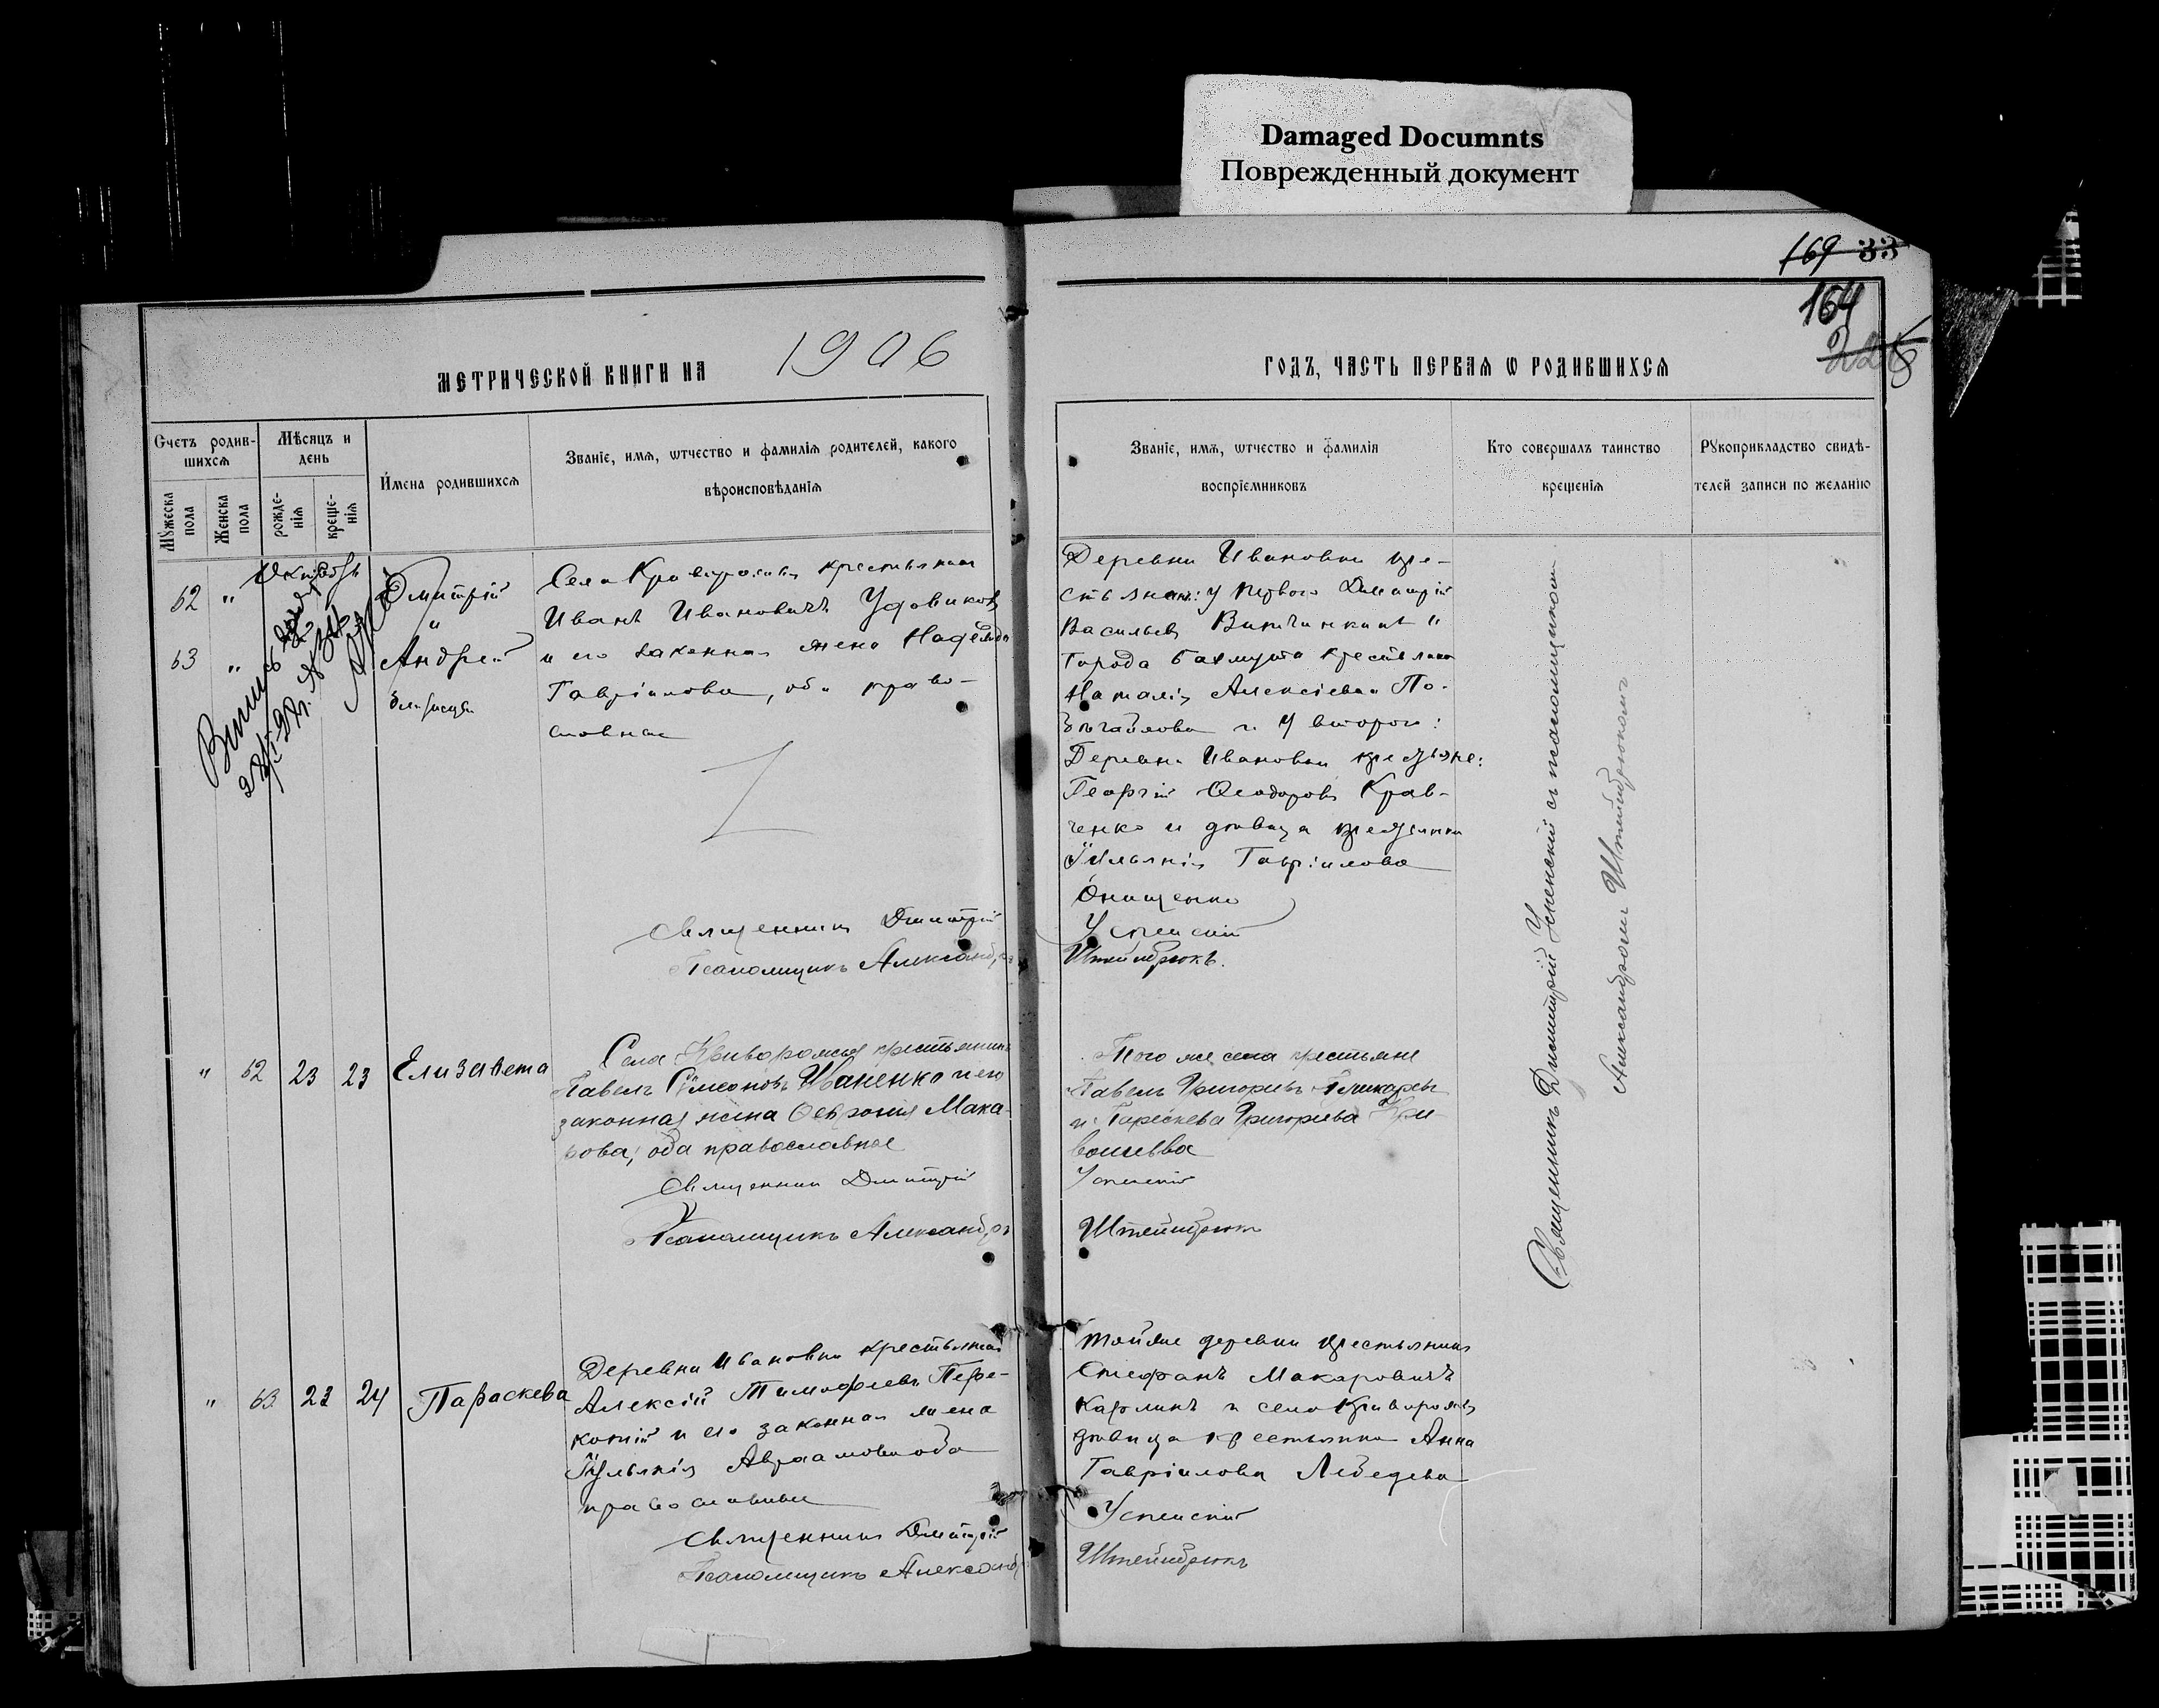 Damaged Documnts
Поврежденный документ
169 33
164
МЕТРИЧЕСКОЙ КНИГИ НА 1906
ГОДЪ, ЧАСТЬ ПЕРВАѦ Ѡ РОДИВШИХСѦ
Счетъ родив-
шихсѧ
Мѣсяцъ и
день
Мужеска пола
Женска пола
рожде-
нїѧ
креще-
нїѧ
Имена родившихсѧ
Званїе, имѧ, ѡтчество и фамилїѧ родителей, какого
вѣроисповѣданїѧ
Званїе, имѧ, ѡтчество и фамилїѧ
воспрїемниковъ
Кто совершалъ таинство
крещенїѧ
Рукоприкладство свидѣ-
телей записи по желанїю
Октябрь
62 "
Дмитрій
"
63 "
Андрей
близнецы
Села Криворожья крестьянин
Иванъ Ивановичъ Удовиковъ
и его законная жена Надежда
Гавріилова, оба право-
славные
Священникъ Дмитрій
Псаломщикъ Александръ
Деревни Ивановки кре-
стьяне: у перваго Димитрій
Васильевъ
города Бахмута крестьянка
Наталія Алексіева По-
и у второго:
Деревни Ивановки крестьяне:
Георгій Ѳеодоровъ Крав-
ченко и дѣвица крестьянка
Іуліанія Гавріилова
Онищенко
Успенскій
Штейнбрюкъ.
" 62 23 23 Елизавета
Села Криворожья крестьянинъ
Павелъ Сумеоновъ Иваненко и его
законная жена Февронія Мака-
рова; оба православные
Священникъ Дмитрій
Псаломщикъ Александръ
Того же села крестьяне
Павелъ Григорьевъ
и Параскева Григорьева
Успенскій
Штейнбрюкъ
" 63 23 24 Параскева
Деревни Ивановки крестьянинъ
Алексій Тимофеевъ
и его законная жена
Іуліанія Авраамова оба
православные
Священникъ Дмитрій
Псаломщикъ Александръ
Той же деревни крестьянинъ
Стефанъ Макаровичъ
Карлинъ и села Криворожья
дѣвица крестьянка Анна
Гавріилова Лебедева
Успенскій
Штейнбрюкъ
Священникъ Димитрій Успенскій съ псаломщикомъ
Александромъ Штейнбрюкомъ